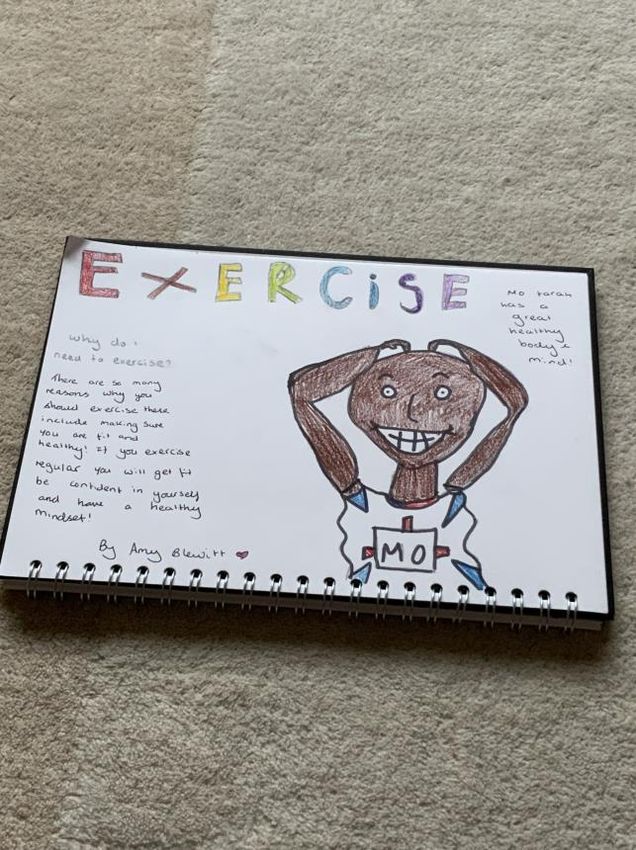 EXERCISE
Mo Farah
has a
great
healthy
body &
mind!
Why do I
need to exercise?
There are so many
reasons why you
should exercise these
include making sure
you are fit and
healthy! If you exercise
regular you will get fit
be confident in yourself
and have a healthy
mindset!
By Amy Blewitt
MO